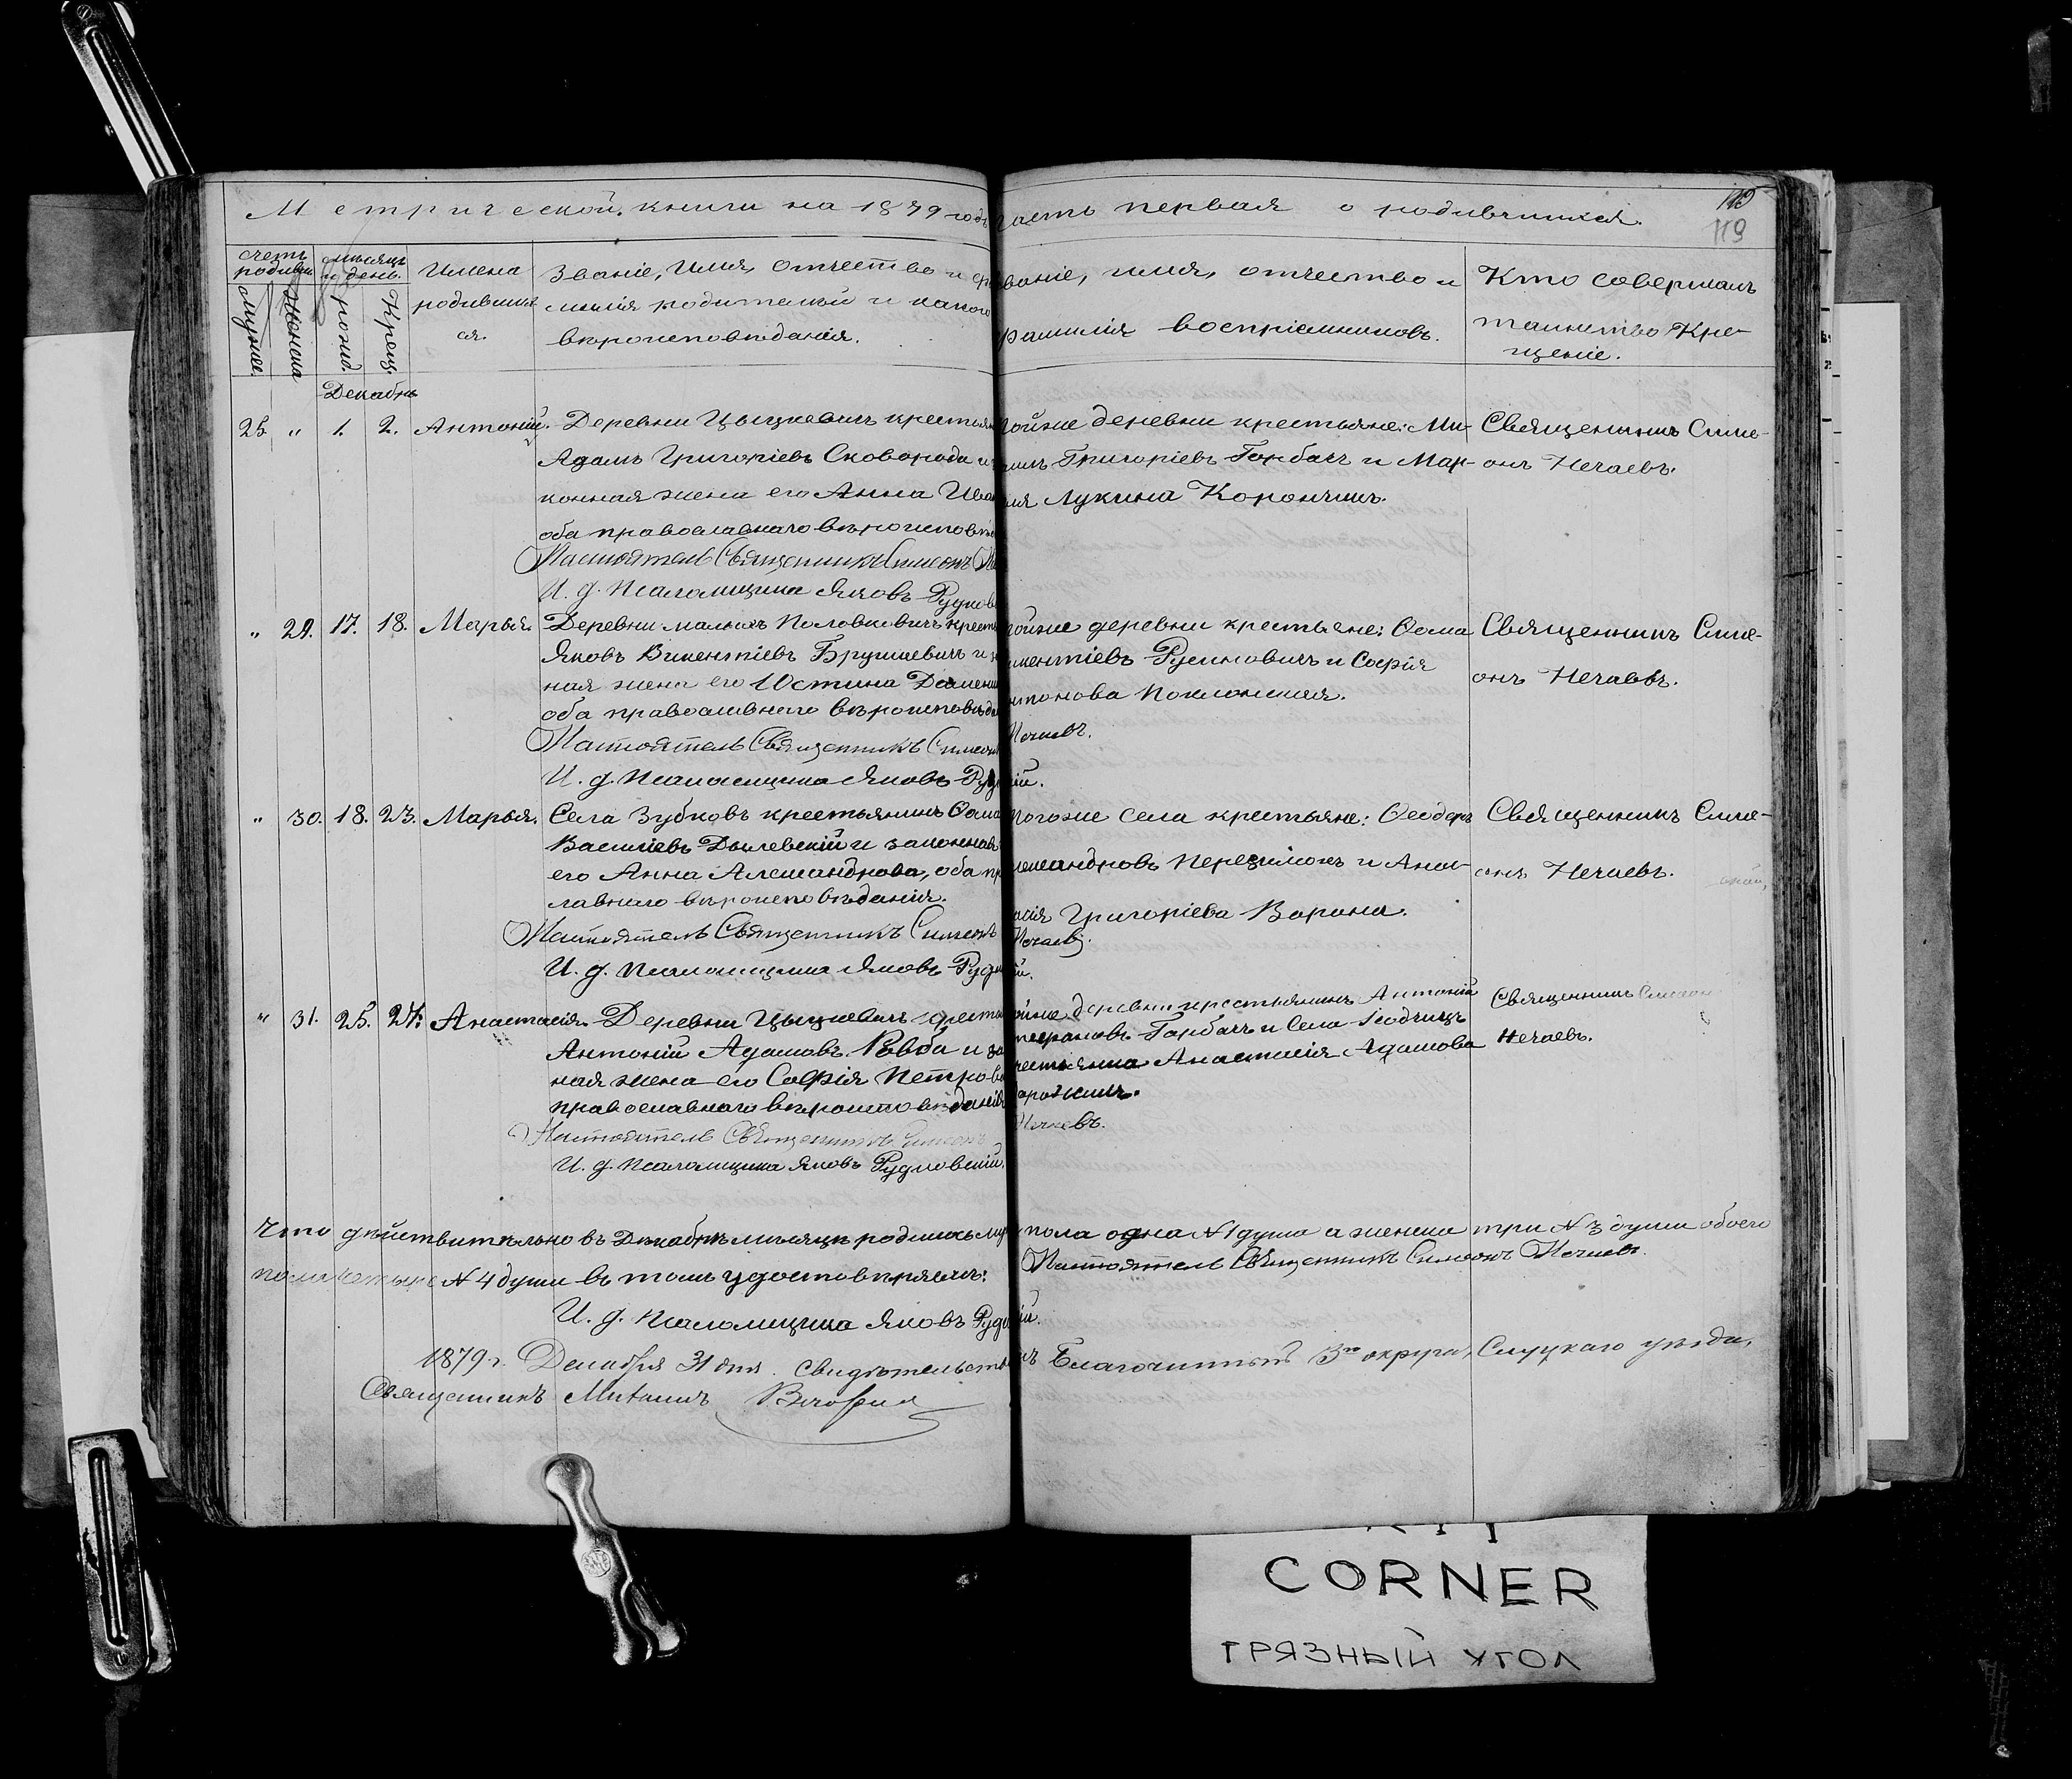 Метрической книги на 1879 годъ часть первая о родившихся.
119
119
счетъ родивш.
мѣсяцъ и день.
Имена родившихся.
Званіе, имя, отчество и фамилія родителей и какого
вѣроисповѣданія.
Званіе, имя, отчество и
фамилія воспріемниковъ.
Кто совершалъ
таинство Кре-
щеніе.
Мужес.
Женска
рожд.
Крещ.
Декабрь
25. „ 1. 2. Антоній.
Деревни Цыцкевичъ крестьян
Адамъ Григоріевъ Сковорода и
конная жена его Анна Иван
оба православнаго вѣроисповѣ
Настоятель Священникъ Симеонъ
И. д. Псаломщика Яковъ Рудков
тойже деревни крестьяне: Ми-
хаилъ Григоріевъ Горбачъ и Мар-
ія Лукина Корончикъ.
Священникъ Симе-
онъ Нечаевъ.
„ 29. 17. 18. Марья.
Деревни малыхъ Половковичъ крест
Яковъ Викентіевъ Брушаевичъ и
ная жена его Юстина Дементі
оба православнаго вѣроисповѣда
Настоятель Священникъ Симеон Нечаевъ.
И. д. Псаломщика Яковъ Руд кій.
тойже деревни крестьяне: Ѳома
ментіевъ Русиновичъ и Софія
нтонова Поклонская.
Священникъ Симе-
онъ Нечаевъ.
„ 30. 18. 23. Марья.
Села Зубковъ крестьянинъ Ѳома
Василіевъ Дылевскій и законная
его Анна Александрова, оба пр
лавнаго вѣроисповѣданія.
Настоятель Священникъ Симеонъ Нечаевъ.
И. д. Псаломщика Яковъ Руд
тогоже села крестьяне: Ѳеодоръ
лександровъ Перезимокъ и Анас-
асія Григоріева Ворона.
Священникъ Симе-
онъ Нечаевъ.
„ 31. 25. 27. Анастасія.
Деревни Цыцкевичъ крестья
Антоній Адамовъ Ровба и за
ная жена его Софія Петрова
православнаго вѣроисповѣданія
Настоятель Священникъ Симеонъ Нечаевъ.
И. д. Псаломщика Яковъ Рудковскій.
тойже деревни крестьянинъ Антоній
Стефановъ Горбачъ и Села
крестьянка Анастасія Адамова
Священникъ Симеон
Нечаевъ.
Что дѣйствительно въ Декабрѣ мѣсяцѣ родилось муж пола одна №1 душа а женска три №3 души обоего
пола четыре №4 души въ томъ удостовѣряемъ: Настоятель Священникъ Симеонъ Нечаевъ.
И. д. Псаломщика Яковъ Руд кій.
1879 г. Декабря 31 дня. свидѣтельств Благочинный 3го округа, Слуцкаго уѣзда,
Священникъ
CORNER
ГРЯЗНЫЙ УГОЛ